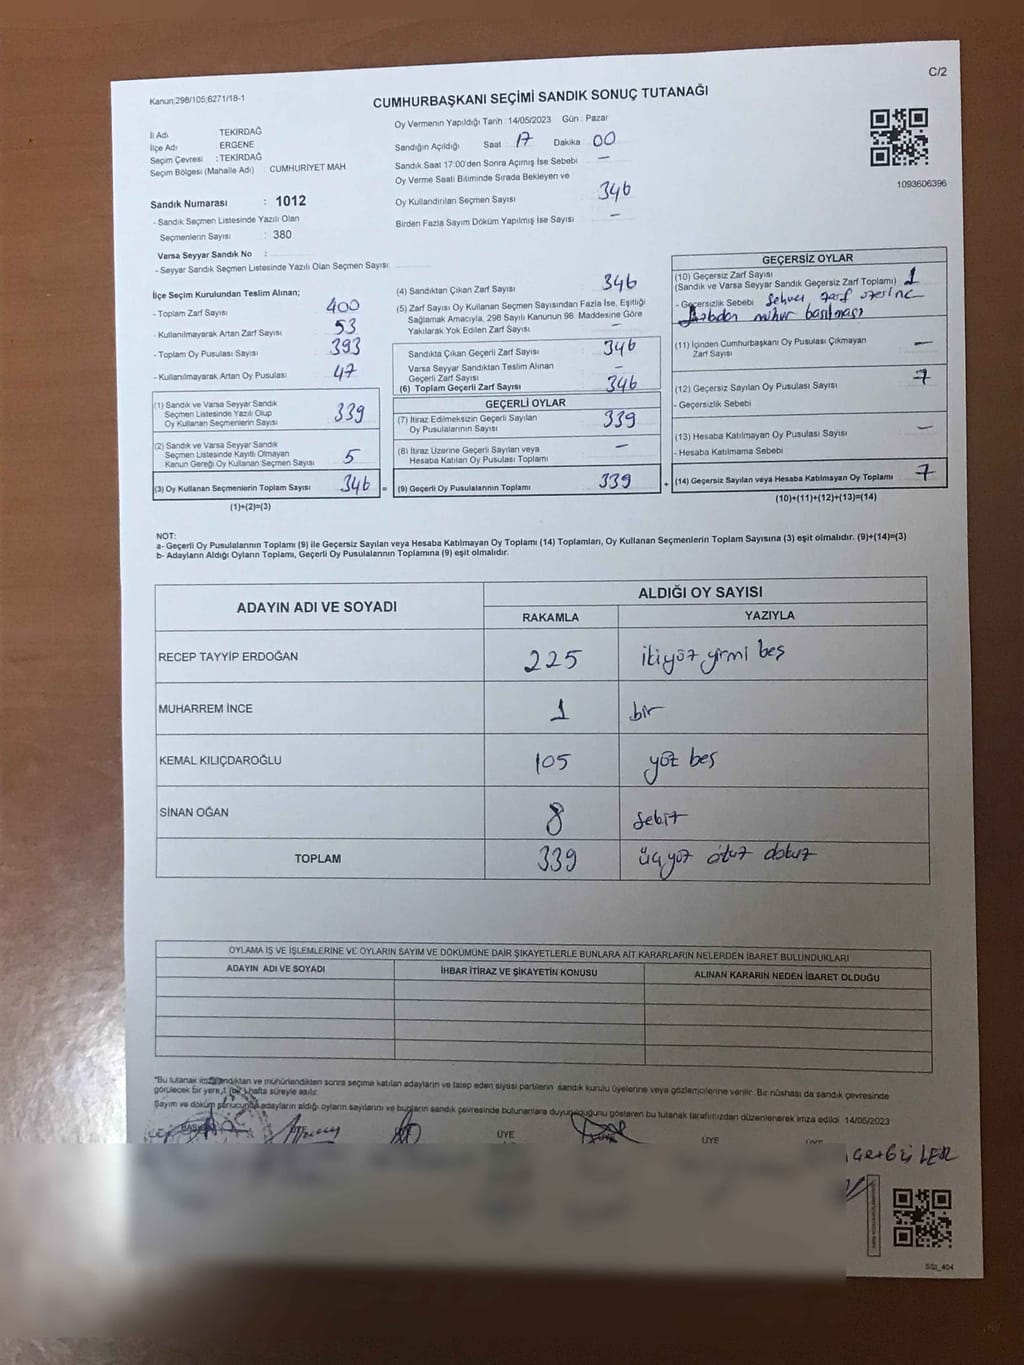 C/2
Kanun;298/105;6271/18-1
CUMHURBAŞKANI SEÇİMİ SANDIK SONUÇ TUTANAĞI
İl Adı TEKİRDAĞ
İlçe Adı ERGENE
Seçim Çevresi : TEKİRDAĞ
Seçim Bölgesi (Mahalle Adı) CUMHURİYET MAH
Sandık Numarası : 1012
- Sandık Seçmen Listesinde Yazılı Olan
Seçmenlerin Sayısı : 380
Varsa Seyyar Sandık No :
- Seyyar Sandık Seçmen Listesinde Yazılı Olan Seçmen Sayısı
Oy Vermenin Yapıldığı Tarih : 14/05/2023 Gün : Pazar
Sandığın Açıldığı Saat 17 Dakika 00
Sandık Saat 17:00'den Sonra Açımış İse Sebebi —
Oy Verme Saati Bitiminde Sırada Bekleyen ve
Oy Kullandırılan Seçmen Sayısı 346
Birden Fazla Sayım Döküm Yapılmış İse Sayısı —
1093606396
İlçe Seçim Kurulundan Teslim Alınan;
- Toplam Zarf Sayısı 400
- Kullanılmayarak Artan Zarf Sayısı 53
- Toplam Oy Pusulası Sayısı 393
- Kullanılmayarak Artan Oy Pusulası 47
(1) Sandık ve Varsa Seyyar Sandık
Seçmen Listesinde Yazılı Olup
Oy Kullanan Seçmenlerin Sayısı 339
(2) Sandık ve Varsa Seyyar Sandık
Seçmen Listesinde Kayıtlı Olmayan
Kanun Gereği Oy Kullanan Seçmen Sayısı 5
(3) Oy Kullanan Seçmenlerin Toplam Sayısı 346 =
(1)+(2)=(3)
(4) Sandıktan Çıkan Zarf Sayısı 346
(5) Zarf Sayısı Oy Kullanan Seçmen Sayısından Fazla İse, Eşitliği
Sağlamak Amacıyla, 298 Sayılı Kanunun 98. Maddesine Göre
Yakılarak Yok Edilen Zarf Sayısı —
Sandıkta Çıkan Geçerli Zarf Sayısı 346
Varsa Seyyar Sandıktan Teslim Alınan
Geçerli Zarf Sayısı —
(6) Toplam Geçerli Zarf Sayısı 346
GEÇERLİ OYLAR
(7) İtiraz Edilmeksizin Geçerli Sayılan
Oy Pusulalarının Sayısı 339
(8) İtiraz Üzerine Geçerli Sayılan veya
Hesaba Katılan Oy Pusulası Toplamı —
(9) Geçerli Oy Pusulalarının Toplamı 339 +
GEÇERSİZ OYLAR
(10) Geçersiz Zarf Sayısı
(Sandık ve Varsa Seyyar Sandık Geçersiz Zarf Toplamı) 1
- Geçersizlik Sebebi Sehven zarf üzerine
mühür basılması
(11) İçinden Cumhurbaşkanı Oy Pusulası Çıkmayan
Zarf Sayısı —
(12) Geçersiz Sayılan Oy Pusulası Sayısı 7
- Geçersizlik Sebebi
(13) Hesaba Katılmayan Oy Pusulası Sayısı —
- Hesaba Katılmama Sebebi
(14) Geçersiz Sayılan veya Hesaba Katılmayan Oy Toplamı 7
(10)+(11)+(12)+(13)=(14)
NOT:
a- Geçerli Oy Pusulalarının Toplamı (9) ile Geçersiz Sayılan veya Hesaba Katılmayan Oy Toplamı (14) Toplamları, Oy Kullanan Seçmenlerin Toplam Sayısına (3) eşit olmalıdır. (9)+(14)=(3)
b- Adayların Aldığı Oyların Toplamı, Geçerli Oy Pusulalarının Toplamına (9) eşit olmalıdır.
ADAYIN ADI VE SOYADI
ALDIĞI OY SAYISI
RAKAMLA YAZIYLA
RECEP TAYYİP ERDOĞAN 225 ikiyüz yirmi beş
MUHARREM İNCE 1 bir
KEMAL KILIÇDAROĞLU 105 yüz beş
SİNAN OĞAN 8 sekiz
TOPLAM 339 üçyüz otuz dokuz
OYLAMA İŞ VE İŞLEMLERİNE VE OYLARIN SAYIM VE DÖKÜMÜNE DAİR ŞİKAYETLERLE BUNLARA AİT KARARLARIN NELERDEN İBARET BULUNDUKLARI
ADAYIN ADI VE SOYADI İHBAR İTİRAZ VE ŞİKAYETİN KONUSU ALINAN KARARIN NEDEN İBARET OLDUĞU
"Bu tutanak imzalandıktan ve mühürlendikten sonra seçime katılan adayların ve talep eden siyasi partilerin sandık kurulu üyelerine veya gözlemcilerine verilir. Bir nüshası da sandık çevresinde
görülecek bir yere,1 (bir) hafta süreyle asılır.
Sayım ve döküm sonucunda adayların aldığı oyların sayılarını ve bunların sandık çevresinde bulunanlara duyurulduğunu gösteren bu tutanak tarafımızdan düzenlenerek imza edildi. 14/05/2023
BAŞKAN ÜYE ÜYE ÜYE ÜYE